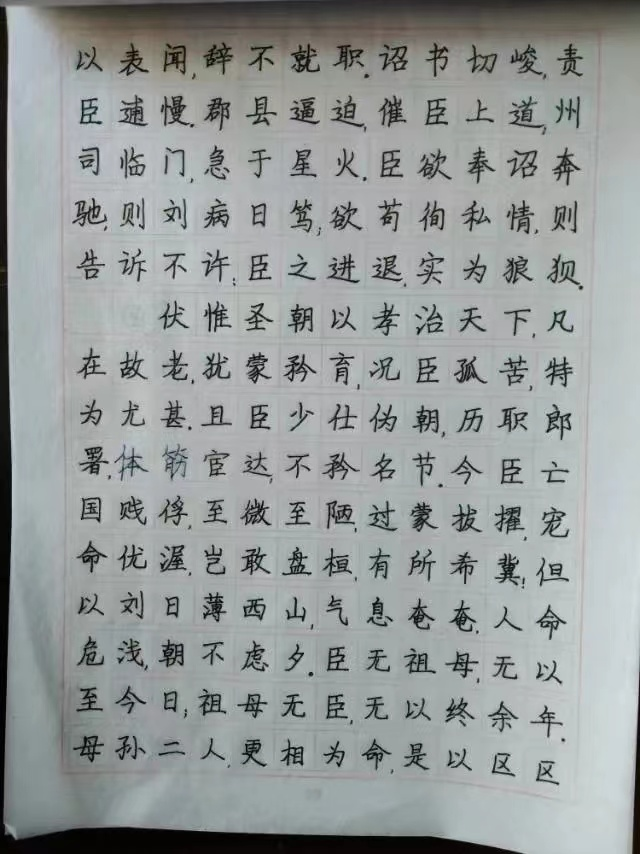 以表闻,辞不就职.诏书切峻,责
臣逋慢.郡县逼迫,催臣上道;州
司临门,急于星火.臣欲奉诏奔
驰,则刘病日笃;欲苟徇私情,则
告诉不许:臣之进退,实为狼狈.
伏惟圣朝以孝治天下,凡
在故老,犹蒙矜育,况臣孤苦,特
为尤甚.且臣少仕伪朝,历职郎
署,体筋宦达,不矜名节.今臣亡
国贱俘,至微至陋,过蒙拔擢,宠
命优渥,岂敢盘桓,有所希冀!但
以刘日薄西山,气息奄奄,人命
危浅,朝不虑夕.臣无祖母,无以
至今日;祖母无臣,无以终余年.
母孙二人,更相为命,是以区区